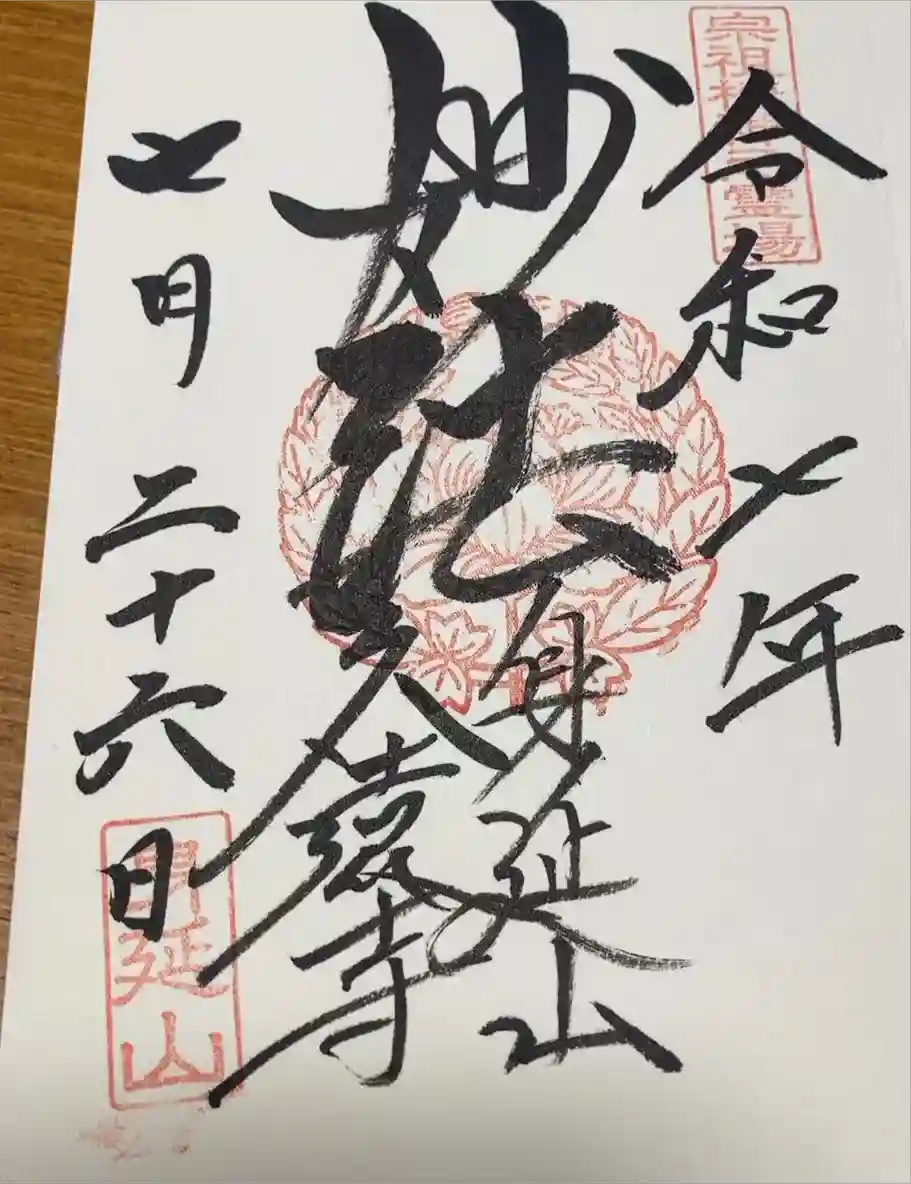 宗祖棲神之霊場
令和七年
妙法
身延山
久遠寺
七月二十六日
身延山